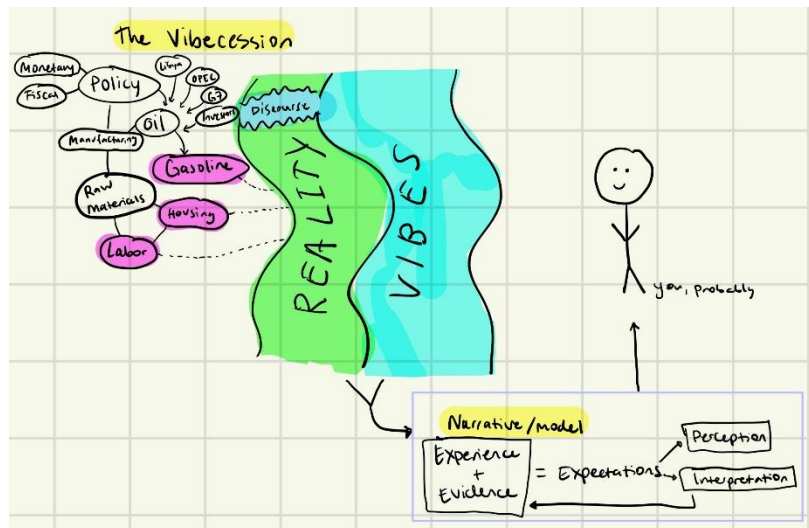 The Vibecession
Monetary
Policy
Fiscal
Libya
OPEC
G7
Investors
Oil
Manufacturing
Gasoline
Raw
Materials
Housing
Labor
Discourse
REALITY
VIBES
you, probably
Narrative/model
Experience
+
Evidence
= Expectations
Perception
Interpretation